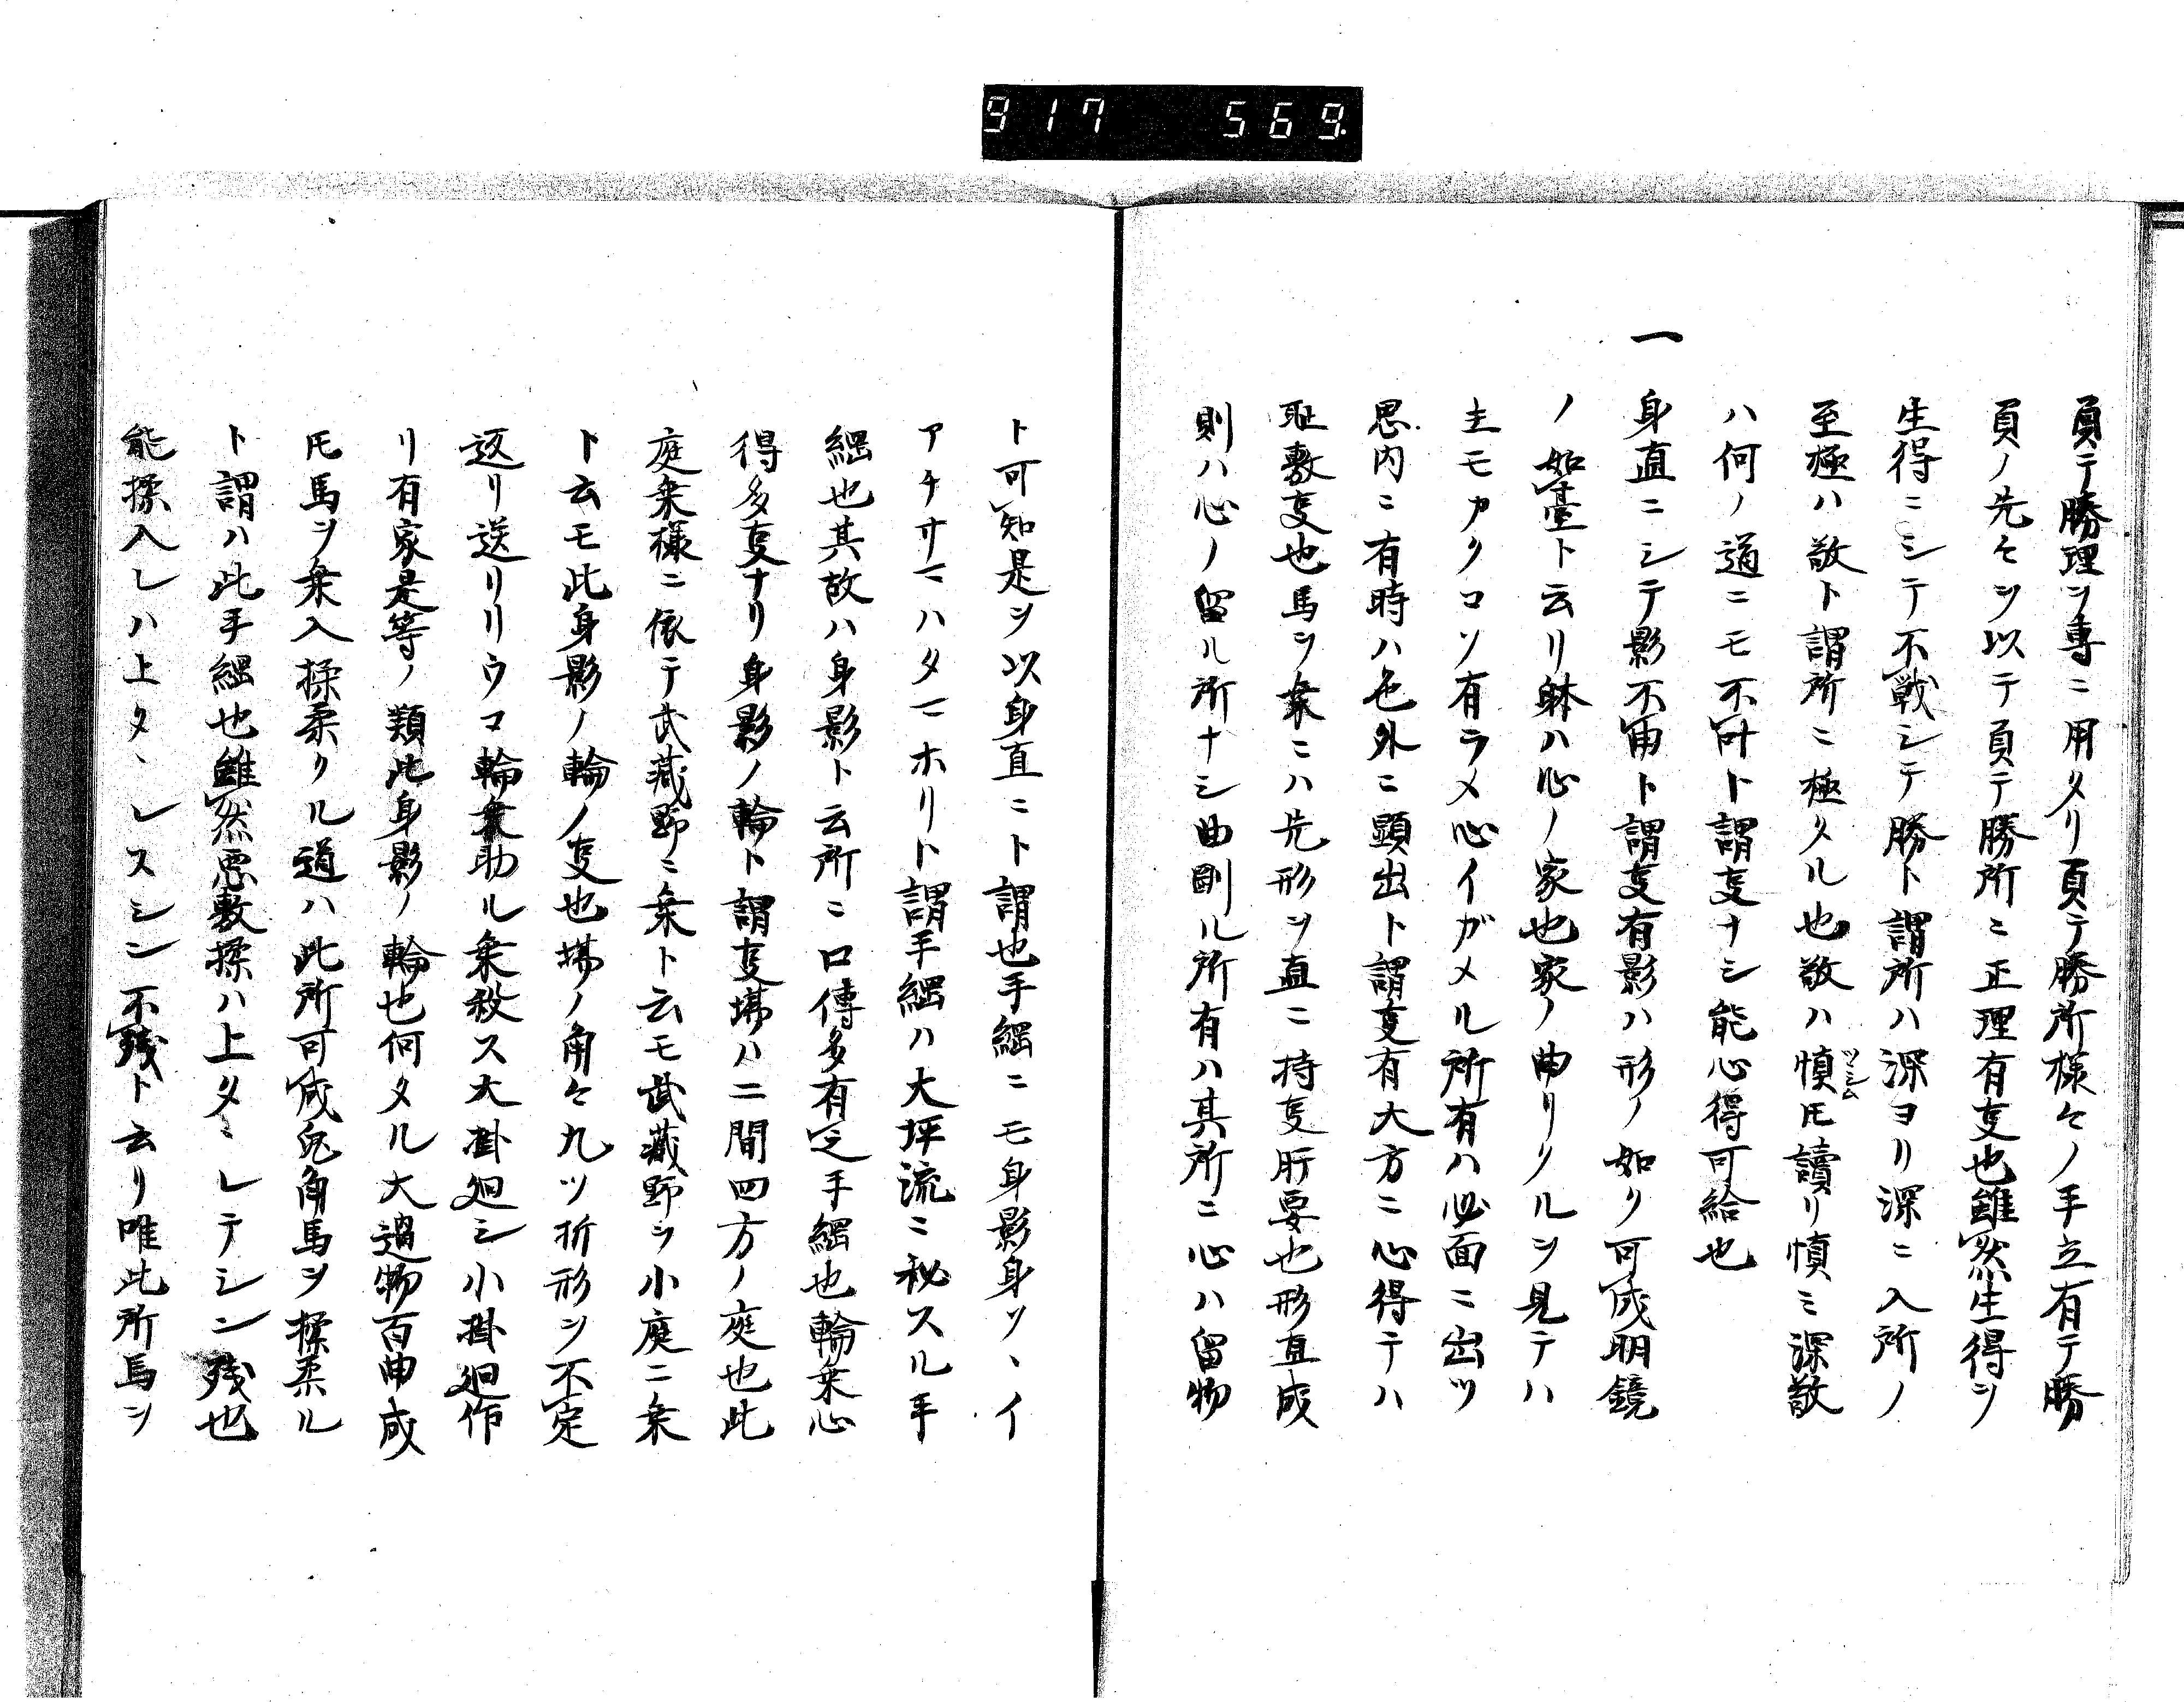 917 569.
負テ勝理ヲ專ニ用タリ負テ勝所様々ノ手立有テ勝
負ノ先々ヲ以テ負テ勝所ニ正理有事也雖然生得ヲ
生得ニシテ不戦シテ勝ト謂所ハ深ヨリ深ニ入所ノ
至極ハ敬ト謂所ニ極タル也敬ハ慎ツヽシム𪜈讀リ慎ミ深敬
ハ何ノ道ニモ不叶ト謂事ナシ能心得可給也
一 身直ニシテ影不曲ト謂事有影ハ形ノ如ク可成明鏡
ノ如臺ト云リ躰ハ心ノ家也家ノ曲リクルヲ見テハ
主モカクコソ有ラメ心イガメル所有ハ必面ニ出ツ
思内ニ有時ハ色外ニ顕出ト謂事有大方ニ心得テハ
耻敷事也馬ヲ乗ニハ先形ヲ直ニ持事肝要也形直成
則ハ心ノ留ル所ナシ曲剛ル所有ハ其所ニ心ハ留物
ト可知是ヲ以身直ニト謂也手綱ニモ身影身ツヽイ
アチサマハタマホリト謂手綱ハ大坪流ニ秘スル手
綱也其故ハ身影ト云所ニ口傳多有之手綱也輪乗心
得多事ナリ身影ノ輪ト謂事場ハ二間四方ノ庭也此
庭乗様ニ依テ武藏野ニ乗ト云モ武藏野ヲ小庭ニ乗
ト云モ此身影ノ輪ノ事也場ノ角々九ツ折形ヲ不定
返リ送リリウコ輪乗助ル乗殺ス大掛廻シ小掛廻作
リ有家是等ノ類此身影ノ輪也何タル大過物百曲成
𪜈馬ヲ乗入揉柔クル道ハ此所可成兎角馬ヲ揉柔ル
ト謂ハ此手綱也雖然悪敷揉ハ上タヽレテシン残也
能揉入レハ上タヽレスシン不残ト云リ唯此所馬ヲ